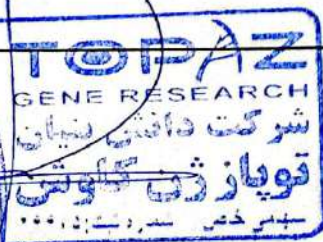 TOPAZ
GENE RESEARCH
شرکت دانش بنیان
توپاز ژن کاوش
سهامی خاص